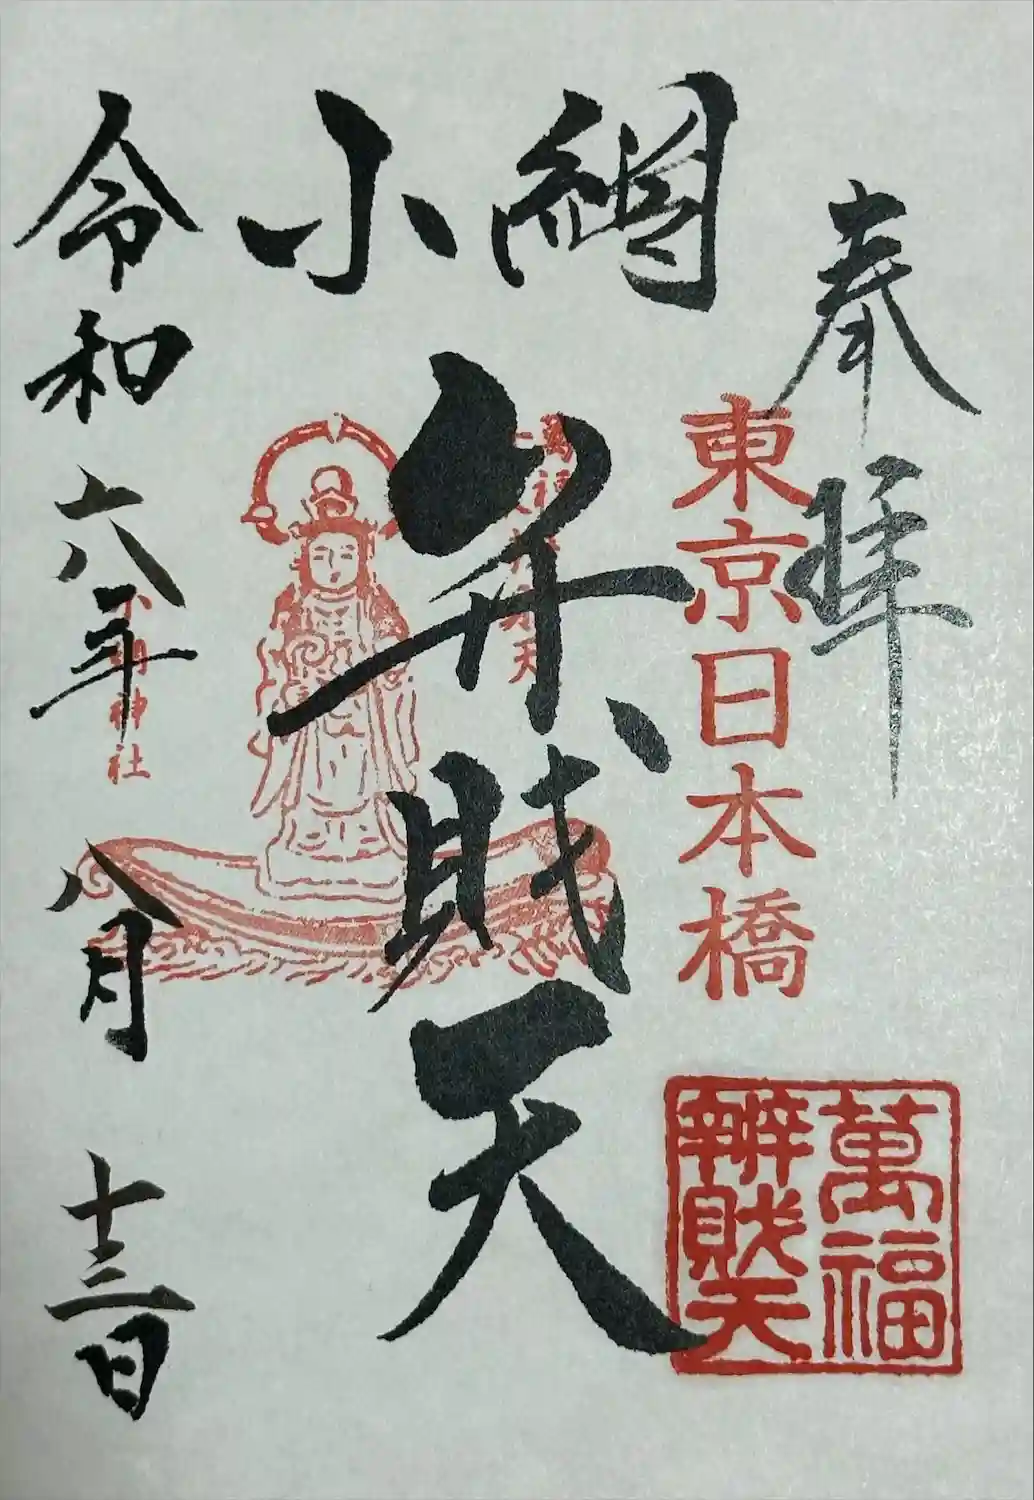 奉拝
東京日本橋
萬福
辨財天
小網
弁財天
令和六年八月十三日
小網神社